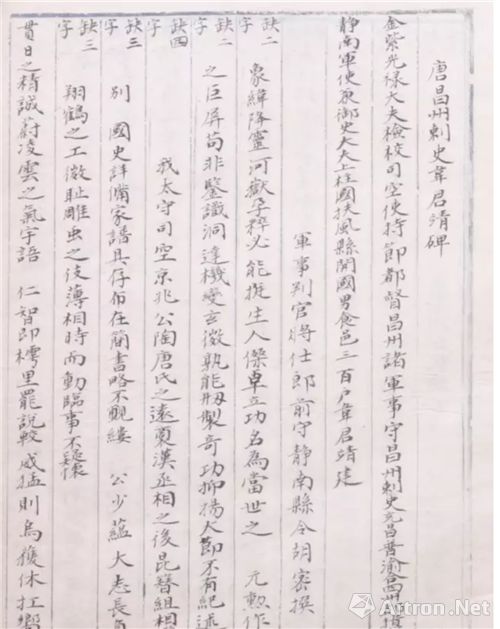 唐昌州刺史韋君靖碑
金紫光祿大夫檢校司空使持節都督昌州諸軍事守昌州刺史充昌普渝合四州
靜南軍使兼御史大夫上柱國扶風縣開國男食邑三百户韋君靖建
軍事判官將仕郎前守靜南縣令胡密撰
缺二字象緯降靈河嶽孕粹必能挺生人傑卓立功名為當世之 元勲作
缺二字之巨屏苟非鑒識洞達機變玄微孰能刱製奇功抑揚大節不有紀述
缺四字我太守司空京兆公陶唐氏之遠裔漢丞相之後昆簪組相
缺三字別 國史詳備家譜具存布在簡書略不覼縷 公少蘊大志長
缺三字翔鶴之工微耻雕虫之伎薄相時而動臨事不疑懷
貫日之精誠蔚凌雲之氣宇語 仁智即樗里罷說較 威猛則烏獲休扛
Artron.Net
雅昌艺术网